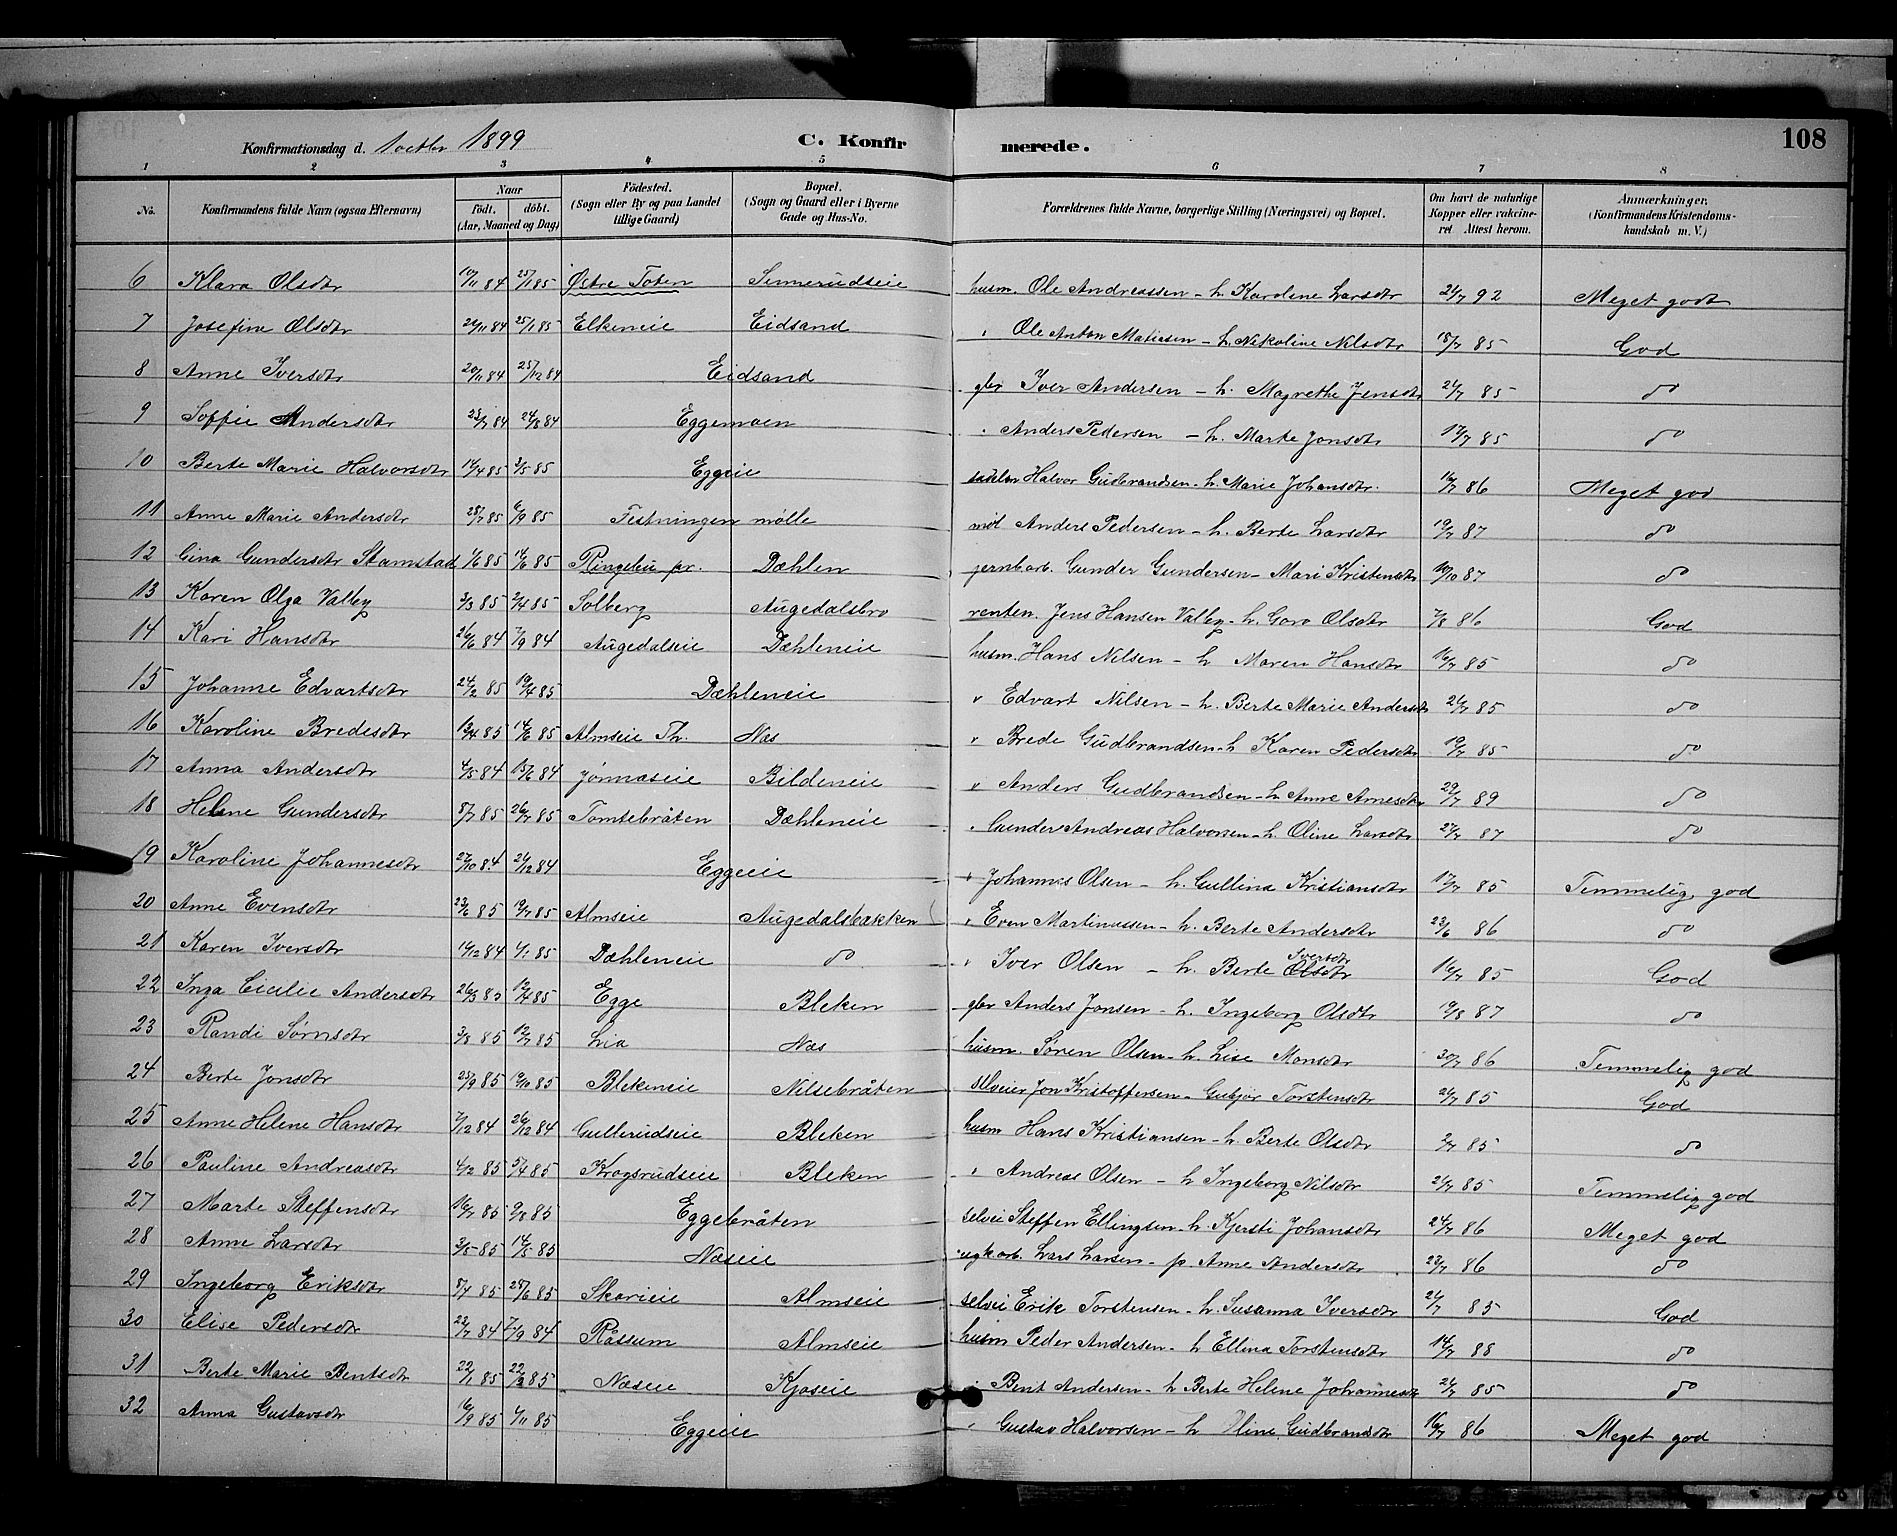 108
Konfirmationsdag d. 1 octbr 1899 C. Konfirmerede.
1 2 3 4 5 6 7 8
No. Konfirmandens fulde Navn (ogsaa Efternavn) Naar född. döbt. (Aar, Maaned og Dag) Födested. (Sogn eller By og paa Landet tillige Gaard) Bopæl. (Sogn og Gaard eller i Byerne Gade og Hus-No. Forældrenes fulde Navne, borgerlige Stilling (Næringsvei) og Bopæl. Om havt de naturlige Kopper eller vakcineret Attest herom. Anmærkninger. (Konfirmandens Kristendomskundskab m. V.)
6 Klara Olsdtr 10/11 84 25/1 85 Østre Toten Sennerudseie husm. Ole Andreassen - h. Karoline Larsdtr 24/7 92 Meget godt
7 Josefine Olsdtr 24/11 84 25/1 85 Elkeneie Eidsand " Ole Anton Matiesen - h. Nikoline Nilsdtr 18/7 85 God
8 Anne Iversdtr 20/11 84 25/12 84 Eidsand gbr Iver Andersen - h. Magrethe Jensdtr 24/7 85 do
9 Soffie Andersdtr 23/7 84 24/8 84 Eggemoen " Anders Pedersen - h. Marte Jonsdtr 17/7 85 do
10 Berte Marie Halvorsdtr 14/4 85 3/5 85 Eggeie Halvor Gudbrandsen - h. Marie Johansdtr. 16/7 86 Meget god
11 Anne Marie Andersdtr 28/7 85 6/9 85 Festningen mølle møl Anders Pedersen - h. Berte Larsdtr 19/7 87 do
12 Gina Gundersdtr Stamstad 1/6 85 14/6 85 Ringebu pr. Dæhlen jernbarb. Gunder Gundersen - Mari Kristensdtr 10/10 87 do
13 Karen Olga Valby 3/3 85 2/4 85 Solberg Augedalsbro renten. Jens Hansen Valby - h. Goro Olsdtr 7/8 86 God
14 Kari Hansdtr 26/6 84 7/9 84 Augedalseie Dæhleneie husm. Hans Nilsen - h. Maren Hansdtr 16/7 85 do
15 Johanne Edvartsdtr 24/2 85 19/4 85 Dæhleneie " Edvart Nilsen - h. Berte Marie Andersdtr 24/7 85 do
16 Karoline Bredesdtr 13/4 85 14/6 85 Almseie Th. Næs " Brede Gudbrandsen - h Karen Pedersdtr 19/7 85 do
17 Anna Andersdtr 4/5 84 15/6 84 Jønnaseie Bildeneie " Anders Gudbrandsen - h. Anne Arnesdtr 29/7 89 do
18 Helene Gundersdtr 8/7 85 26/7 85 Tomtebråten Dæhleneie " Gunder Andreas Halvorsen - h. Oline Larsdtr 27/7 87 do
19 Karoline Johannesdtr 27/10 84 26/12 84 Eggeeie " Johannes Olsen - h. Gullina Kristiansdtr 17/7 85 Temmelig god
20 Anne Evensdtr 23/6 85 19/7 85 Almseie Augedalsbakken " Even Martinussen - h. Berte Andersdtr 23/6 86 do
21 Karen Iversdtr 14/12 84 1/1 85 Dæhleneie do " Iver Olsen - h. Berte Olsdtr Iversdtr 16/7 85 God
22 Inga Cicilie Andersdtr 26/3 85 12/4 85 Egge Bleken gbr Anders Jonsen - h. Ingeborg Olsdtr 19/8 87 do
23 Randi Sørnsdtr 3/3 85 12/7 85 Lia Næs husm. Søren Olsen - h. Lise Monsdtr 30/7 86 Temmelig god
24 Berte Jonsdtr 25/9 85 9/10 85 Blekeneie Nilsebråten selveier Jon Kristoffersen - Gubjør Torstensdtr 24/7 85 God
25 Anne Helene Hansdtr 7/12 84 26/12 84 Gullerudseie Bleken husm Hans Kristiansen - h. Berte Olsdtr 2/7 85 do
26 Pauline Andreasdtr 4/2 85 5/4 85 Krogsrudseie Bleken " Andreas Olsen - h Ingeborg Nilsdtr 24/7 85 Temmelig god
27 Marte Steffensdtr 16/7 85 9/8 85 Eggebråten selvei Steffen Ellingsen - h. Kjersti Johansdtr 24/7 86 Meget god
28 Anne Larsdtr 3/5 85 14/5 85 Næseie Lars Larsen - p. Anne Andersdtr. 23/7 86 do
29 Ingeborg Eriksdtr 8/4 85 28/6 85 Skarieie Almseie selvei Erik Torstensen - h. Susanna Iversdtr 24/7 85 God
30 Elise Pedersdtr 22/7 84 7/9 84 Råssum Almseie husm Peder Andersen - h Ellina Torstensdtr 14/7 88 do
31 Berte Marie Bentsdtr 22/1 85 22/3 85 Næseie Kjøseie " Bent Andersen - h Berte Helene Johannesdtr 24/7 85 do
32 Anna Gustavsdtr 16/9 85 1/11 85 Eggeeie " Gustav Halvorsen - h Oline Gudbrandsdtr 16/7 86 Meget god